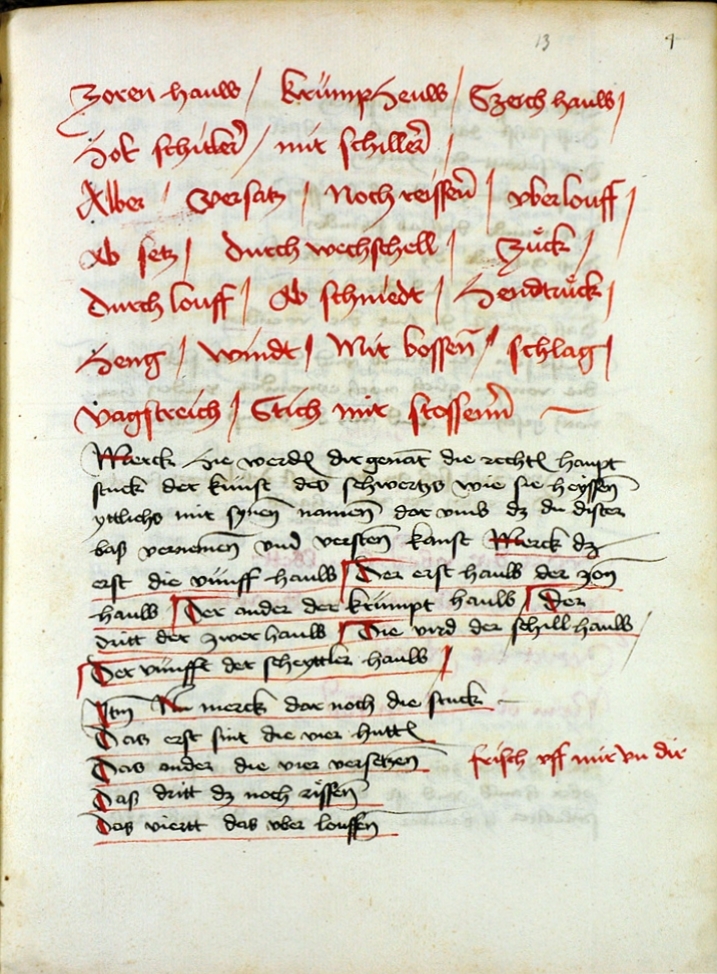 13 9
Zoren hauw / krump heuw / Szerch hauw /
Hot schiller / mit schiller /
Alber / versatz / Noch reissen / vberlouff /
Ab setz / durch wechschell / Zück /
durch louff / Ab schniedt / Hendtrück /
Heng / windt / Mit bossen / schlag /
vagstreich / Stich mit stossenn
Merck Hie werdē dir genāt die rechtē haupt
stuck der kunst des schwertzs wie sie heyssen
yttlichs mit synen namen dar vmb dz du dister
bas vernemen vnd versten kanst Merck dz
erst die vünff hauw Der erst hauw der zorn
hauw Der ander der krumpt hauw Der
dritt der zwer hauw Die vird der schill hauw
Der vünfft der scheyttler hauw
Itm Nu merck dar noch die stuck
Das erst sint die vier huttē
Das ander die vier versetzen
frisch vff mir vn dir
Das dritt dz noch rissen
Das viertt das vber louffen